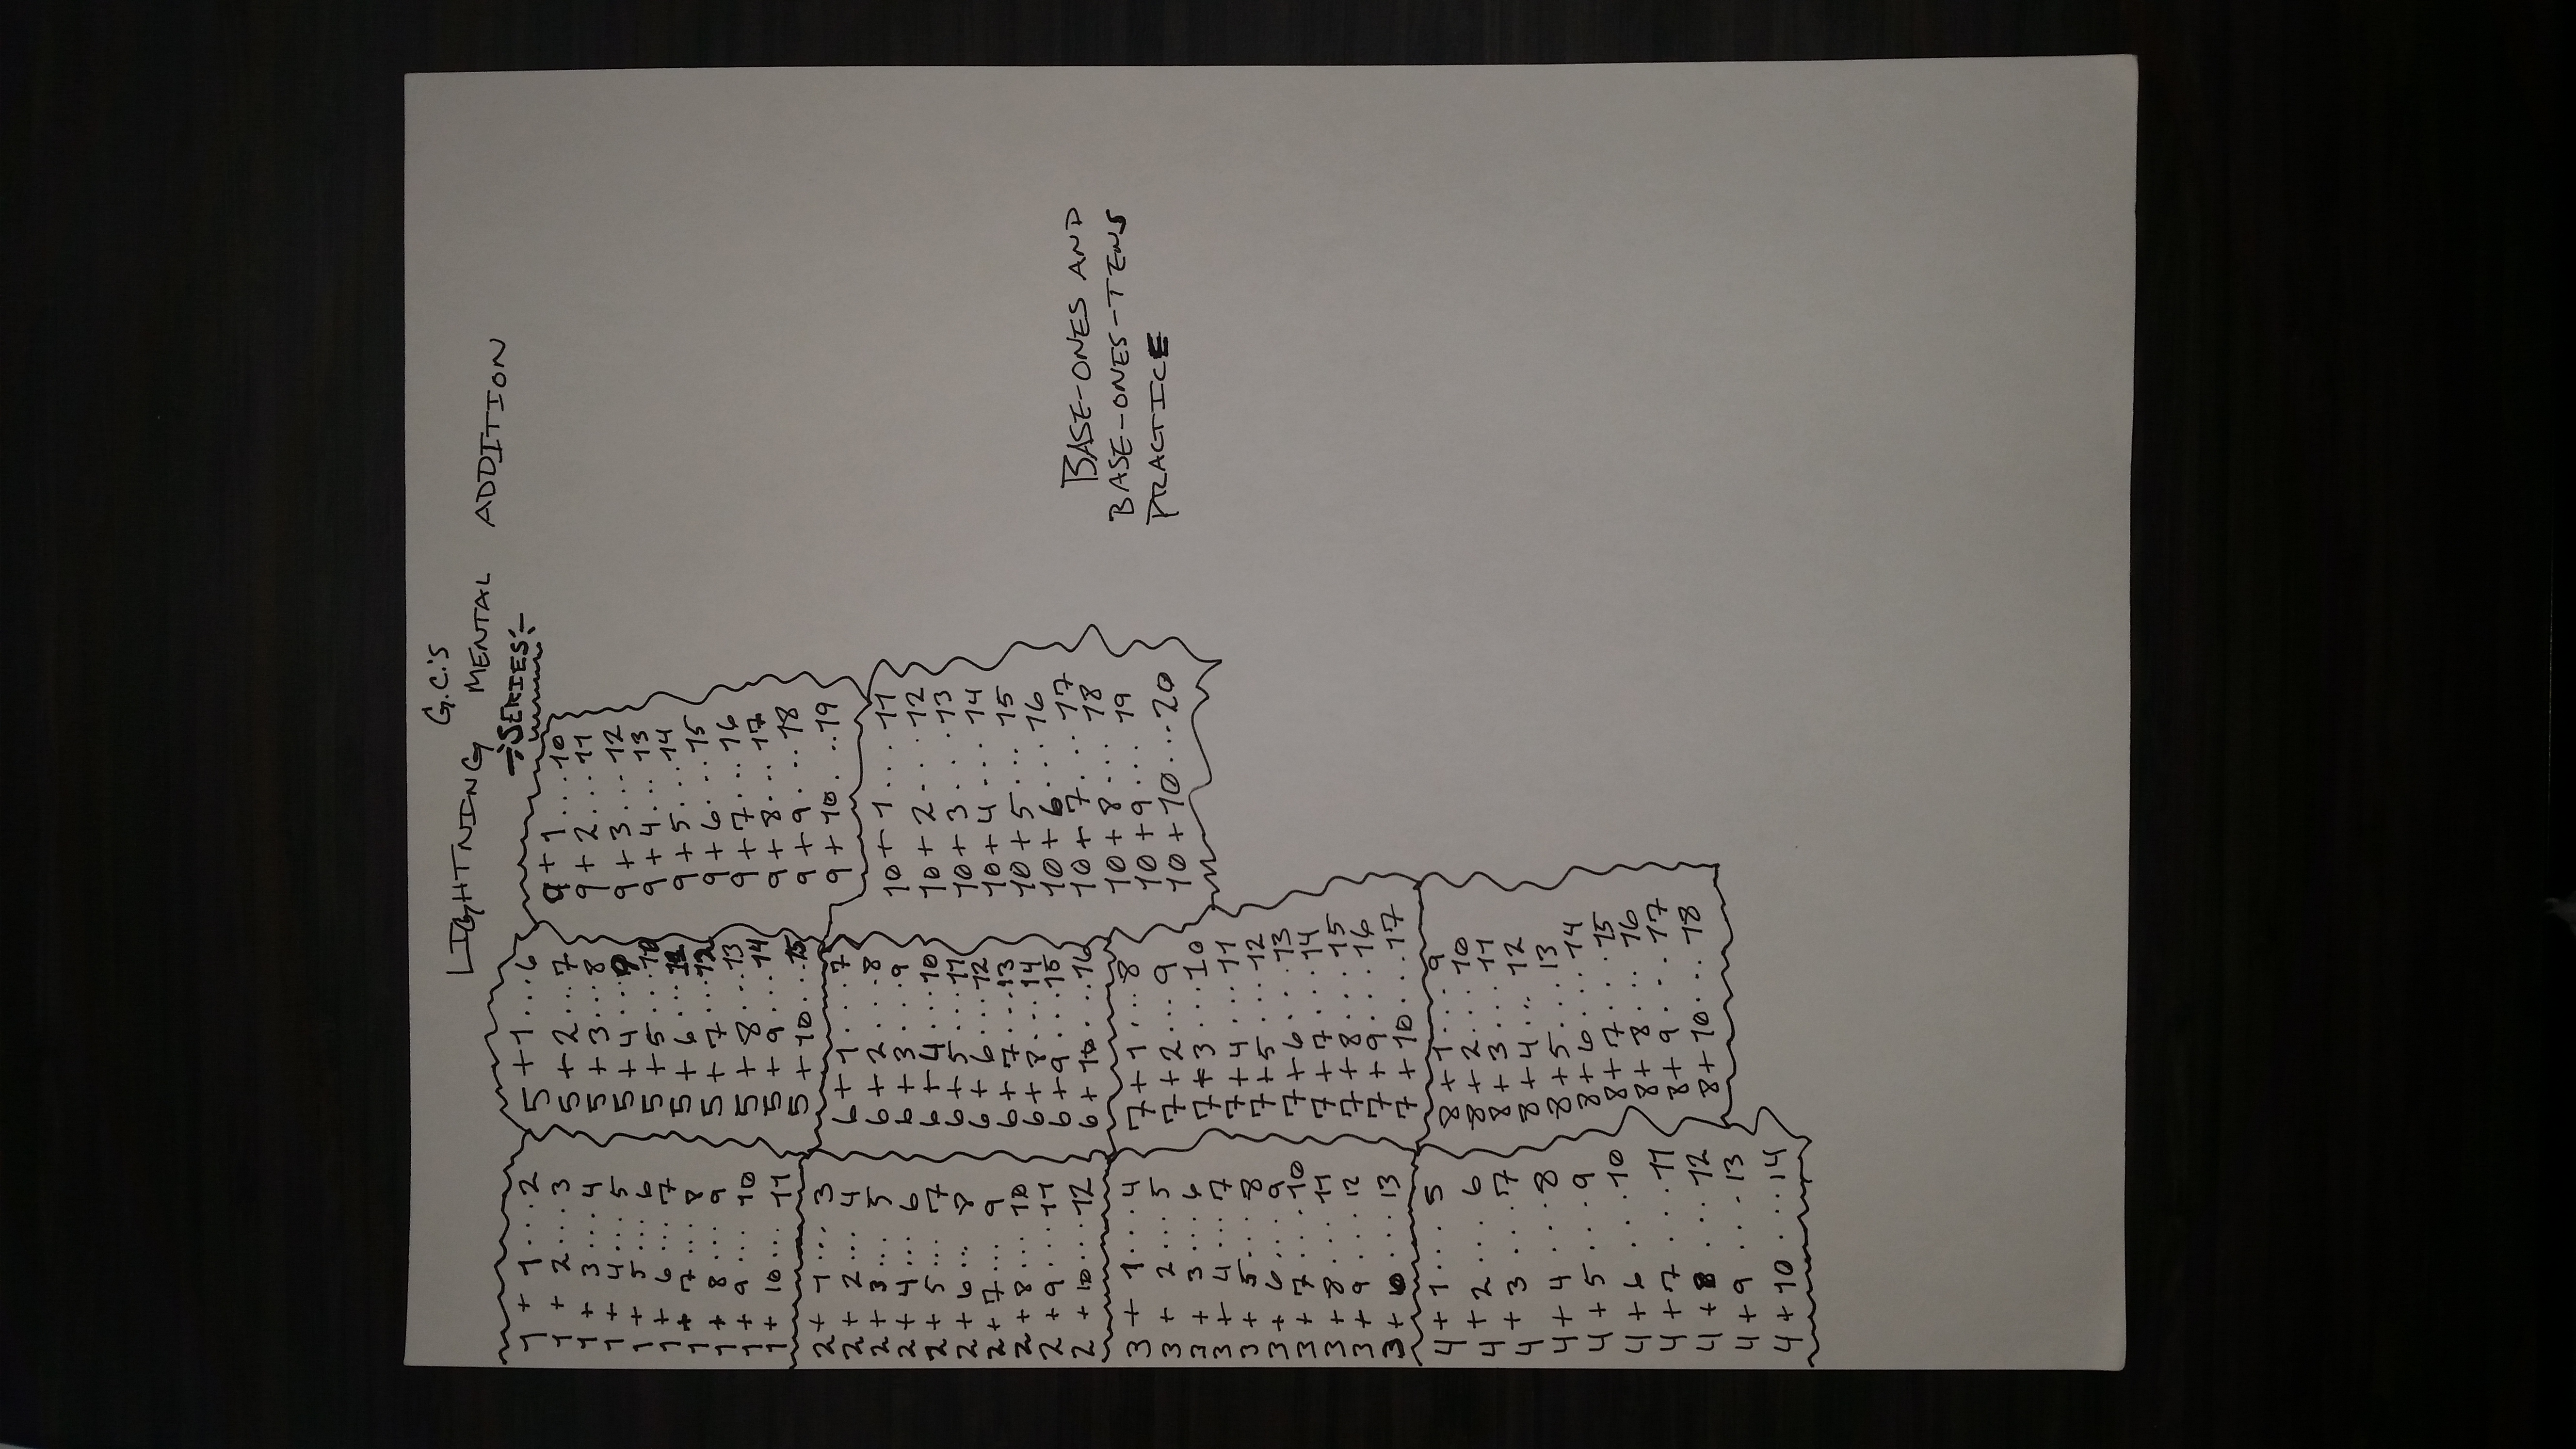 G.C.'S
LIGHTNING MENTAL ADDITION
SERIES
1 + 1...2
1 + 2...3
1 + 3...4
1 + 4...5
1 + 5...6
1 + 6...7
1 + 7...8
1 + 8...9
1 + 9...10
1 + 10...11
2 + 1...3
2 + 2...4
2 + 3...5
2 + 4...6
2 + 5...7
2 + 6...8
2 + 7...9
2 + 8...10
2 + 9...11
2 + 10...12
3 + 1...4
3 + 2...5
3 + 3...6
3 + 4...7
3 + 5...8
3 + 6...9
3 + 7...10
3 + 8...11
3 + 9...12
3 + 10...13
4 + 1...5
4 + 2...6
4 + 3...7
4 + 4...8
4 + 5...9
4 + 6...10
4 + 7...11
4 + 8...12
4 + 9...13
4 + 10...14
5 + 1...6
5 + 2...7
5 + 3...8
5 + 4...9
5 + 5...10
5 + 6...11
5 + 7...12
5 + 8...13
5 + 9...14
5 + 10...15
6 + 1...7
6 + 2...8
6 + 3...9
6 + 4...10
6 + 5...11
6 + 6...12
6 + 7...13
6 + 8...14
6 + 9...15
6 + 10...16
7 + 1...8
7 + 2...9
7 + 3...10
7 + 4...11
7 + 5...12
7 + 6...13
7 + 7...14
7 + 8...15
7 + 9...16
7 + 10...17
8 + 1...9
8 + 2...10
8 + 3...11
8 + 4...12
8 + 5...13
8 + 6...14
8 + 7...15
8 + 8...16
8 + 9...17
8 + 10...18
9 + 1...10
9 + 2...11
9 + 3...12
9 + 4...13
9 + 5...14
9 + 6...15
9 + 7...16
9 + 8...17
9 + 9...18
9 + 10...19
10 + 1...11
10 + 2...12
10 + 3...13
10 + 4...14
10 + 5...15
10 + 6...16
10 + 7...17
10 + 8...18
10 + 9...19
10 + 10...20
BASE-ONES AND
BASE-ONES-TENS
PRACTICE